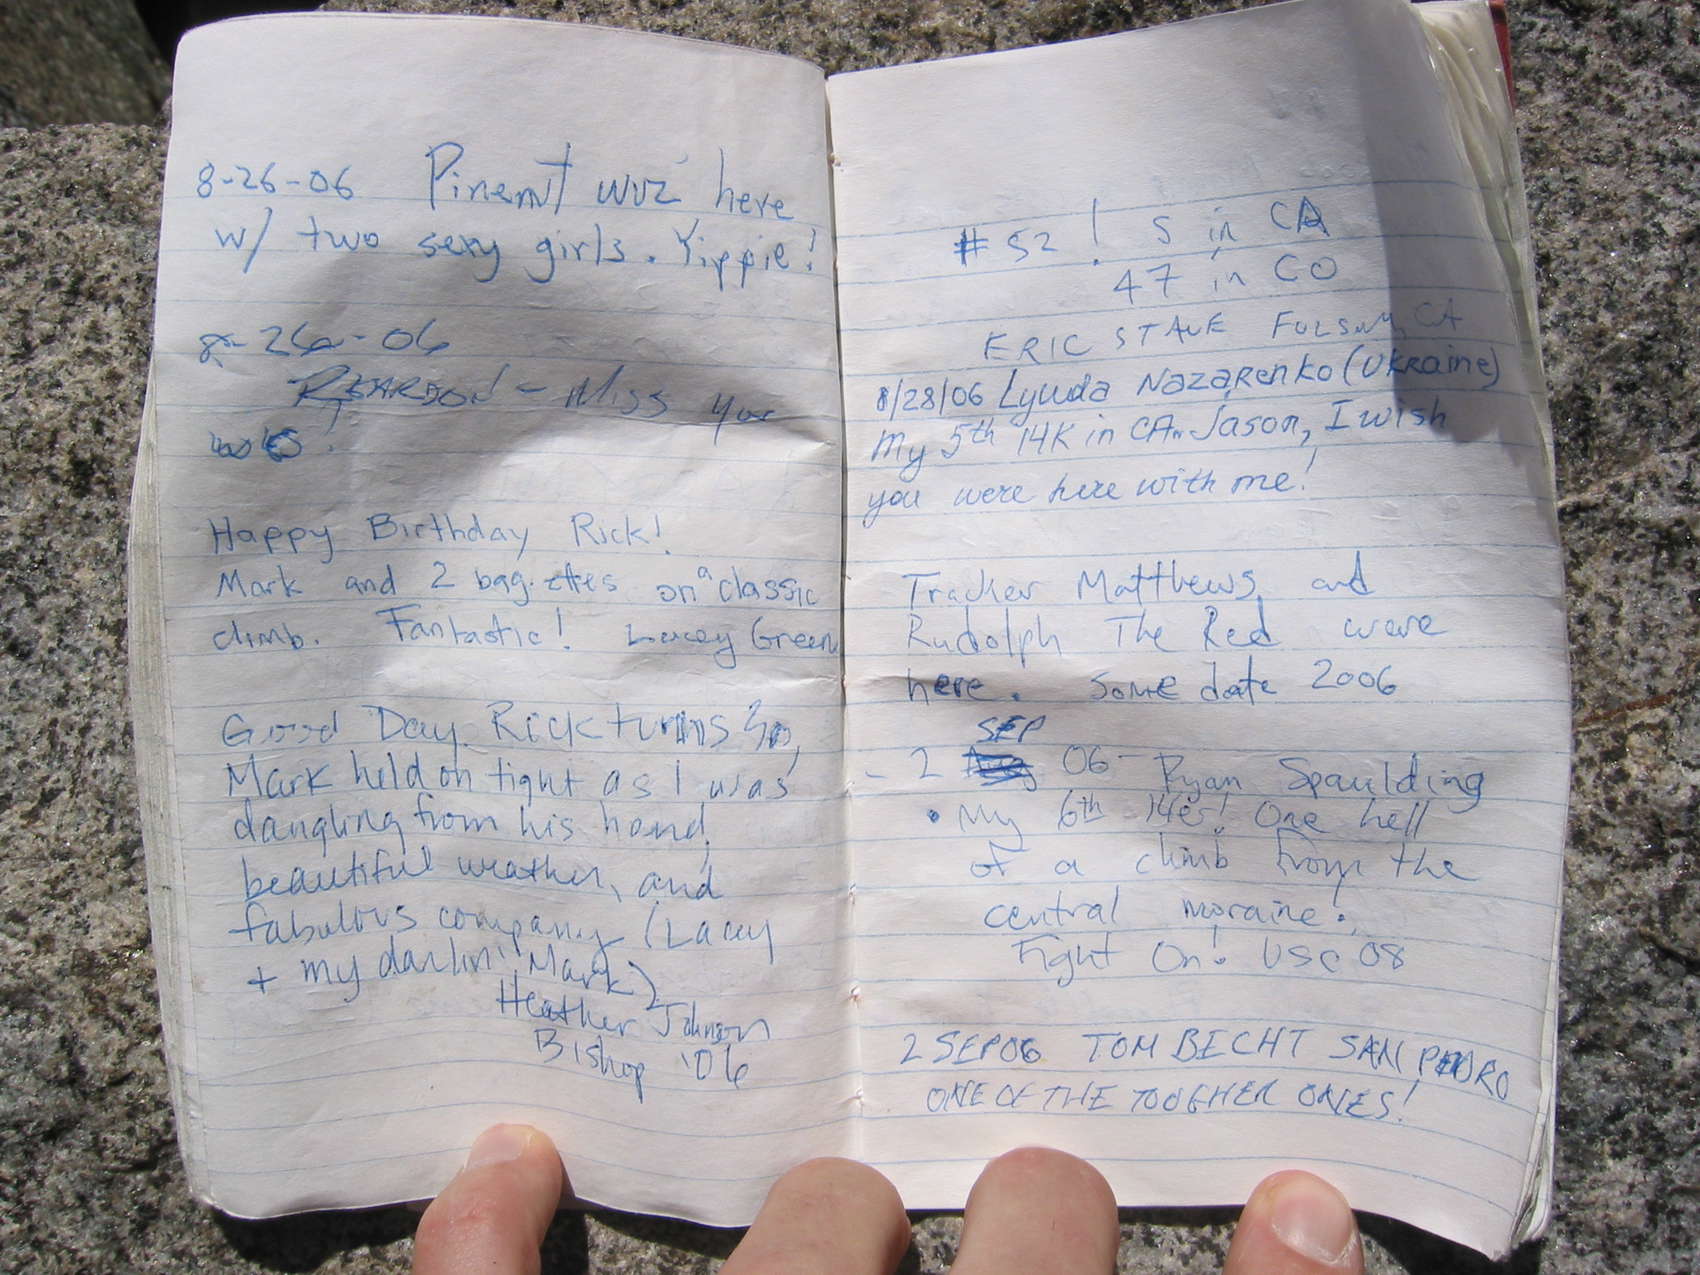 8-26-06 Pinenut wuz here
w/ two sexy girls. Yippie!
8-26-06
REARDON! - Miss you
Happy Birthday Rick!
Mark and 2 bag-ettes on a classic
climb. Fantastic! Lacey Green
Good Day. Rick turns 30,
Mark held on tight as I was
dangling from his hand,
beautiful weather, and
fabulous company (Lacey
+ my darlin' Mark)
Heather Johnson
Bishop '06
#52! 5 in CA
47 in CO
ERIC STAUE FOLSOM, CA
8/28/06 Lyuda Nazarenko (Ukraine)
My 5th 14K in CA. Jason, I wish
you were here with me!
Tracker Matthews and
Rudolph The Red were
here. Some date 2006
SEP
- 2 Aug 06 - Ryan Spaulding
• My 6th 14er! One hell
of a climb from the
central moraine!
Fight On! USC 08
2 SEP06 TOM BECHT SAN PEDRO
ONE OF THE TOUGHER ONES!